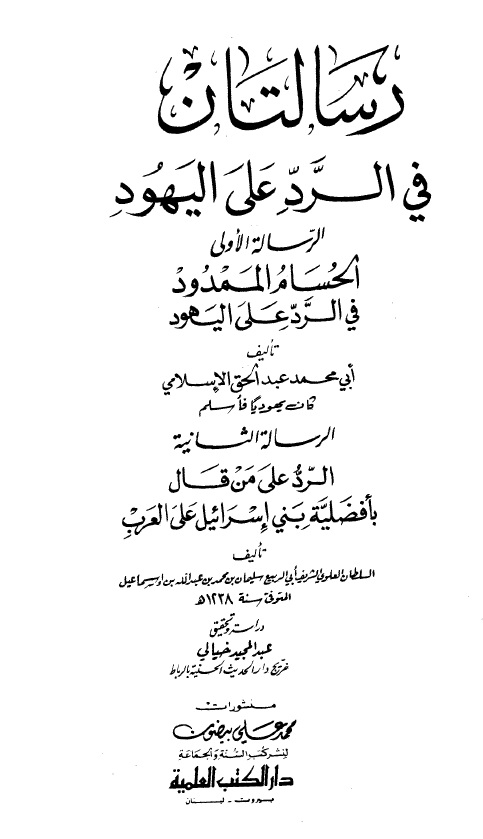 رسالتان
في الرَّدِّ عَلَى اليَهُودِ
الرسالة الأولى
الحُسَامُ المَمْدُودْ
في الرَّدِّ عَلَى اليَهود
تأليف
أبي محمد عبد الحق الإسلامي
كان يهوديًا فأسلم
الرسالة الثانية
الرَّدُّ عَلَى مَنْ قَال
بأفضَليَّة بَني إسْرَائيل عَلى العَرَبِ
تأليف
السلطان العلوي الشريف أبي الربيع سليمان بن محمد بن عبد الله بن إسماعيل
المتوفى سنة ١٢٣٨هـ
دراسة وتحقيق
عبد المجيد خيالي
خريج دار الحديث الحسنية بالرباط
منشورات
محمد علي بيضون
لنشر كتب السُّنة والجماعة
دار الكتب العلمية
بيروت - لبنان